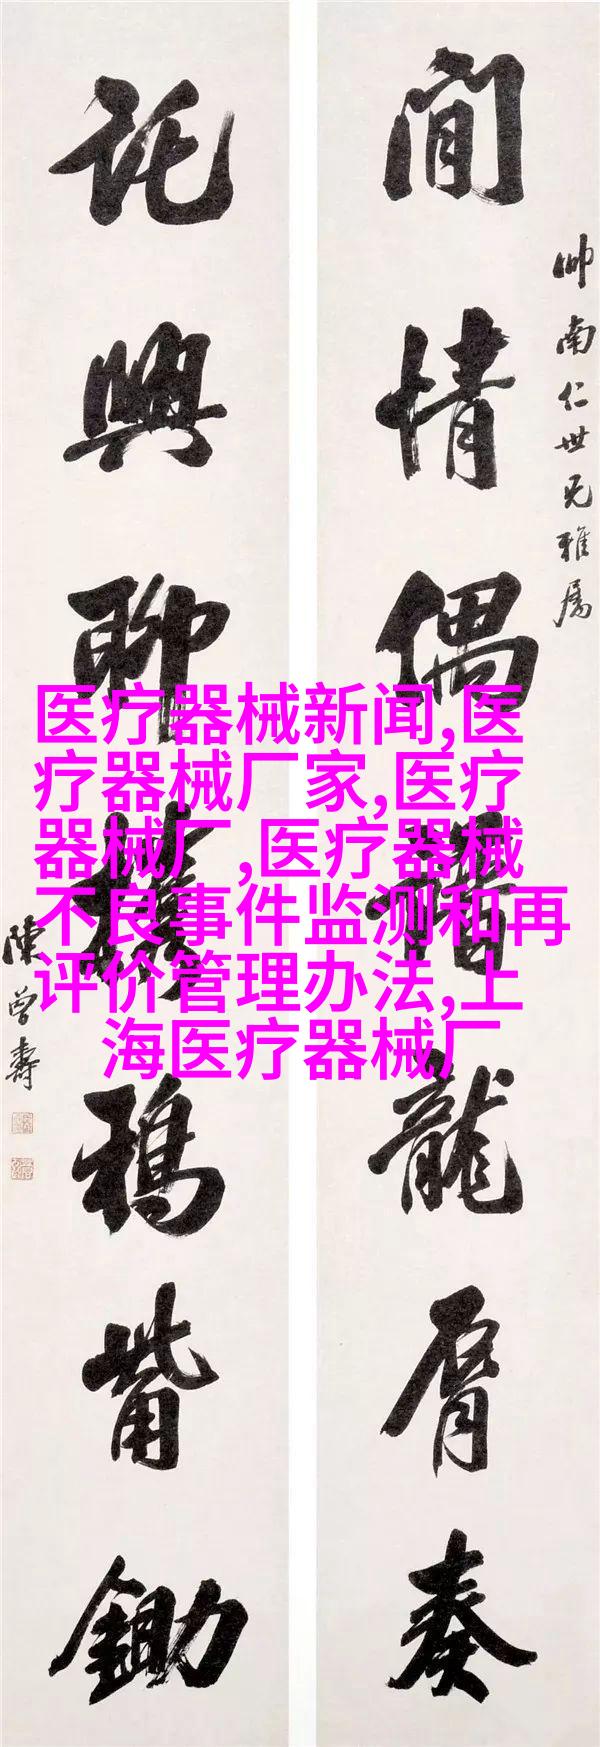 帥南仁世兄雅屬
閒情偶譜龍脣奏
託興聊攜鴉觜鋤
陳曾壽
医疗器械新闻,医
疗器械厂家,医疗
器械厂,医疗器械
不良事件监测和再
评价管理办法,上
海医疗器械厂